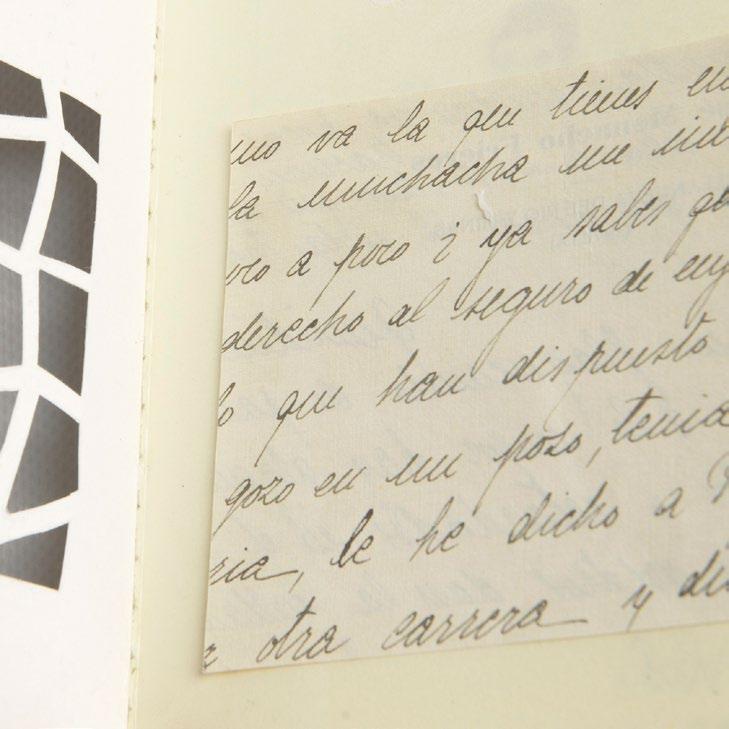 mo va la que tienes en
la muchacha me
oco a poco i ya sabes
derecho al seguro de
lo que han dispuesto
gozo en un pozo, tenia
ria, le he dicho a
otra carrera y